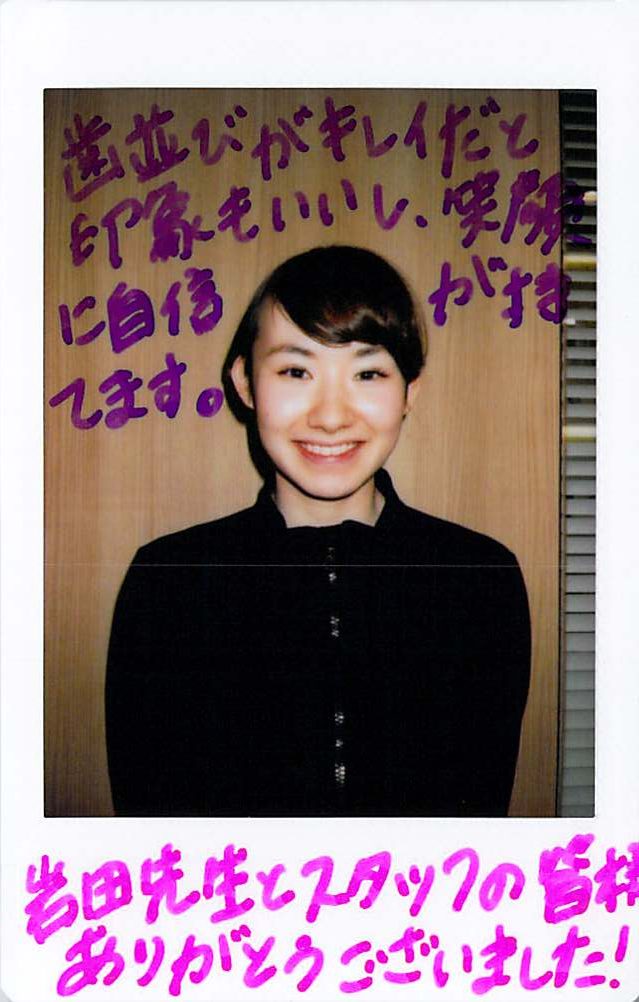 歯並びがキレイだと
印象もいいし、笑顔
に自信がすき
てます。
岩田先生とスタッフの皆様
ありがとうございました!